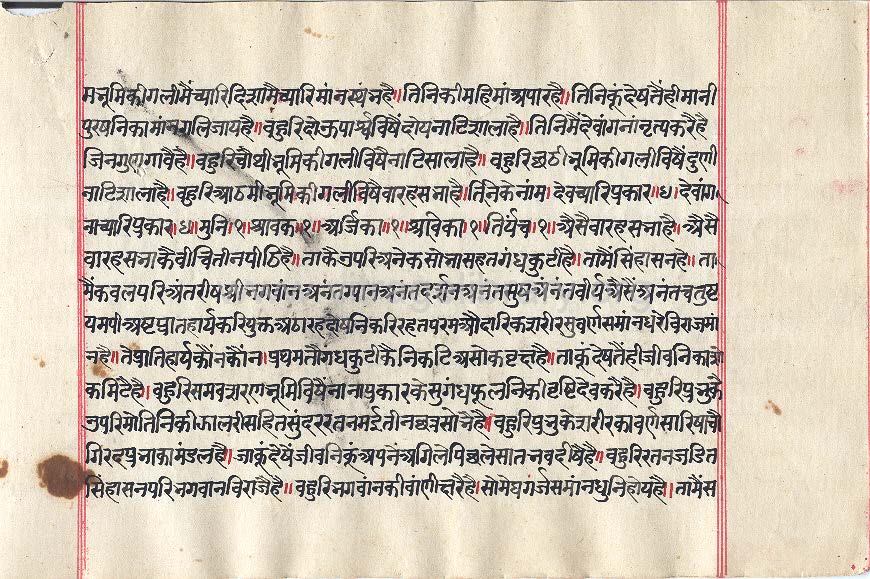 मभूमिकी गलीमैं च्यारि दिशामै च्यारि मांनस्थंनहै॥ तिनिकी महिमां अपारहै॥ तिनिकूं देषतैंही मानी
पुरुषनिका मांन गलिजायहै॥ वहुरि दोऊ पार्श्वविषैं दोय नाटिशालाहै॥ तिनिमैं देवांगनां नृत्यकरैहै
जिनगुण गावैहै॥ वहुरि चौथी भूमिकी गलीविषै नाटिसालाहै॥ वहुरि छठी भूमिकी गलीविषैं दुणी
नाटिशालाहै॥ वहुरि आठमी भूमिकी गलीविषै वारहसभाहै॥ तिनिके नांम। देव च्यारिप्रकार॥४॥ देवांग
नाच्यारिप्रकार॥४॥ मुनि॥१॥ श्रावक॥१॥ अर्जिका॥१॥ श्राविका॥१॥ तिर्यंच॥१॥ अैसै वारहसभाहै॥ अैसै
वारहसभाकै वीचि तीनपीठिहै॥ ताकै ऊपरि अनेक सोभासहत गंधकुटीहै॥ तामैं सिंहासनहै॥ ता
मैं कवलपरि अंतरीष श्रीभगवांन अनंतग्यांन अनंतदर्शन अनंतसुष अनंतवीर्य अैसैं अनंतचतुष्ट
यमणी अष्टप्रातहार्यकरियुक्त अठारहदोषनिकरिरहत परमऔदारिकशरीर सुवर्णसमांन धरे विराजमां
नहै॥ ते प्रातिहार्य कौंन कौंन॥ प्रथम तौ गंधकुटीकै निकटि असोकवृक्षहै॥ ताकूं देषतैंही जीवनिका शो
क मिटैहै॥ वहुरि समवशरणभूमिविषैं नानाप्रकारके सुगंधफूलनिकी वृष्टि देव करैहै॥ वहुरि प्रभुकै
ऊपरि मोतिनिकी झालरीसहित सुंदर रतनमई तीन छत्र सोभैहै॥ वहुरि प्रभुके शरीरका वर्णसारिषा चौ
गिरद प्रभाकामंडलहै॥ जाकूं देषैं जीवनिकूं अपनें अगिले पिछले सात भव दीषैहै॥ वहुरि रतनजडित
सिंहासनपरि भगवान विराजैहै॥ वहुरि भगवांनकी वांणी षिरैहै॥ सो मेघगर्जसमांन धुनि होयहै॥ तामैं स